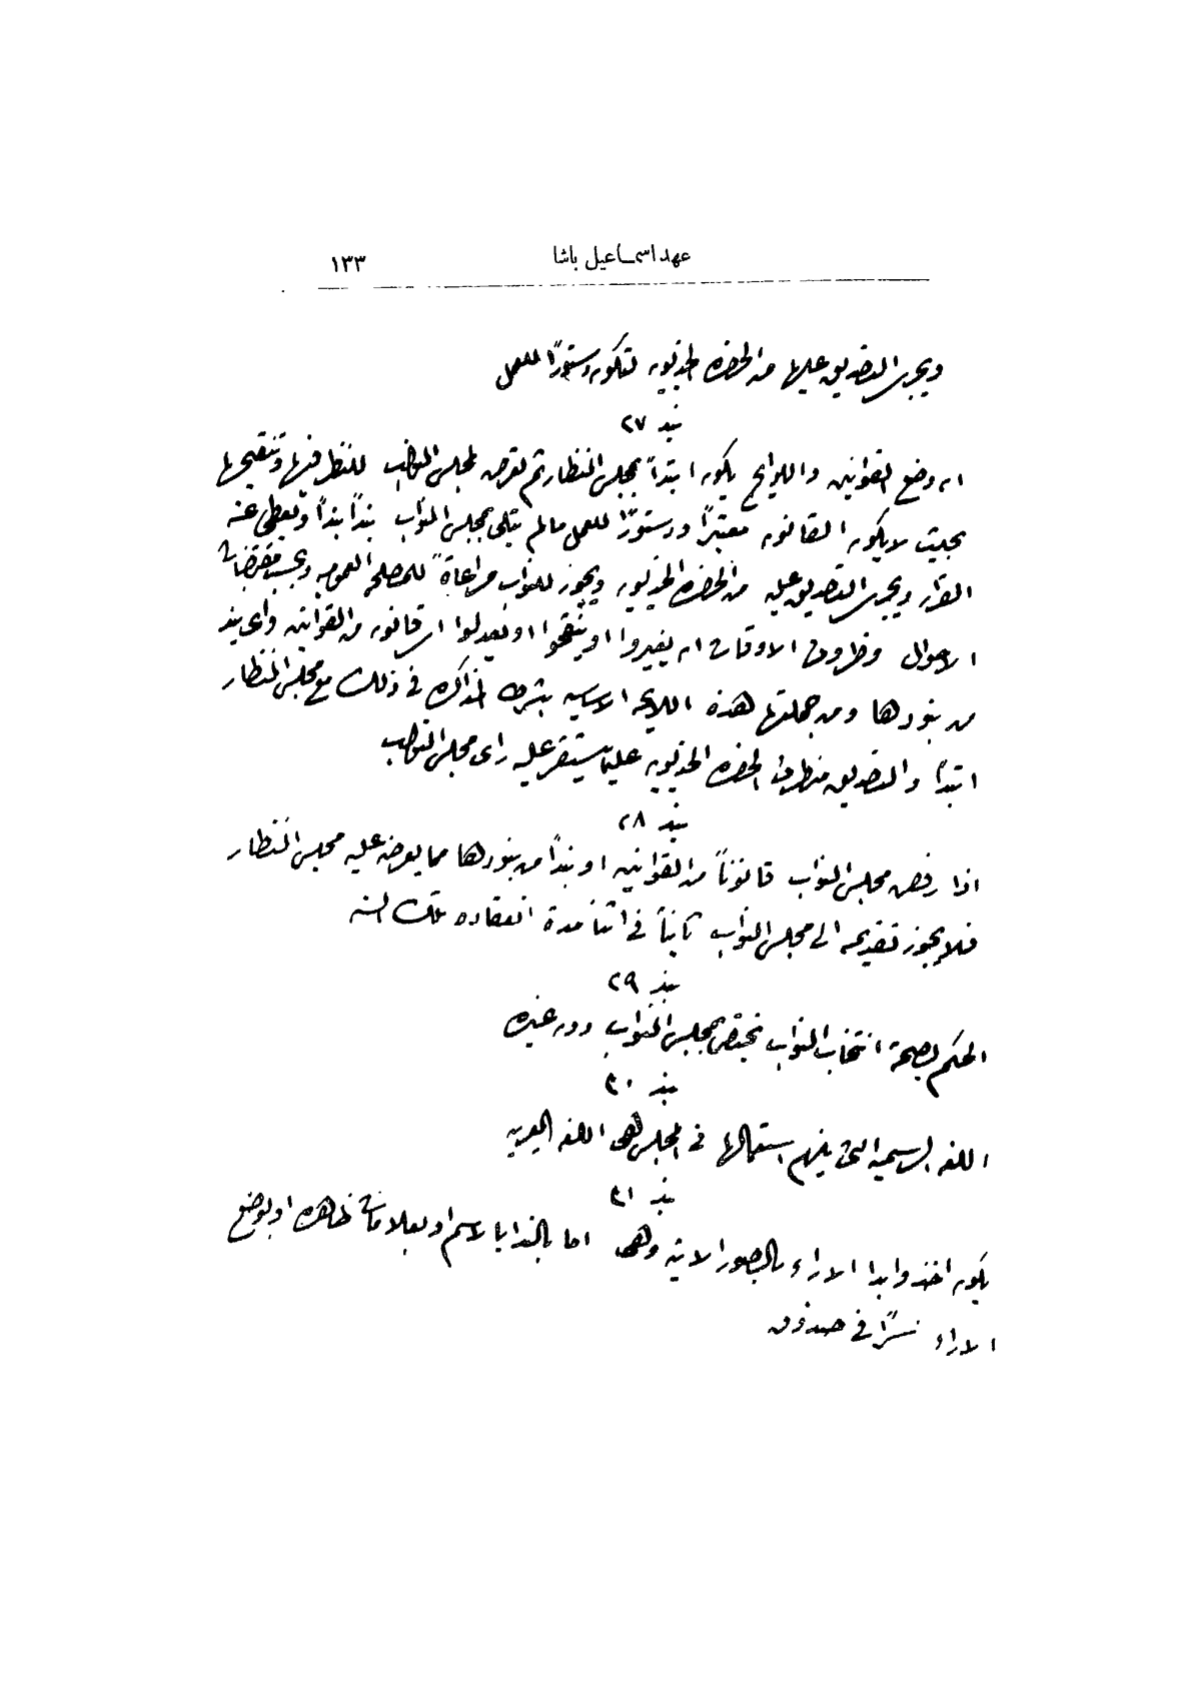 عهد اسمـاعيل باشا ١٣٣
ويجرى التصديق عليها من الحضره الخديويه لتكون دستورًا للعمل
بند ٢٧
ان وضع القوانين واللوايح يكون ابتدآ بمجلس النظار ثم تعرض لمجلس النواب للنظر فيها وتنقيحها
بحيث لا يكون القانون معتبرًا ودستورًا للعمل مالم يتلى بمجلس النواب بندًا بندًا ويعطى عنه
القرار ويجرى التصديق عليه من الحضره الخديويه ويجوز للنواب مراعاةً للمصلحه العموميه وبحسب مقتضيات
الاحوال وظروف الاوقات ان يغيروا او ينقحوا او يعدلوا اى قانون من القوانين واى بند
من بنودها ومن جملتها هذه اللايحه الاساسيه بشرط المذاكره فى ذلك مع مجلس النظار
ابتدآ والتصديق من طرف الحضره الخديويه على ما يستقر عليه راى مجلس النواب
بند ٢٨
اذا رفض مجلس النواب قانونًا من القوانين او بندًا من بنودها مما يعرضه عليه مجلس النظار
فلا يجوز تقديمه الى مجلس النواب ثانيًا فى اثنا مدة انعقاده تلك السنه
بند ٢٩
الحكم بصحة انتخاب النواب يختص بمجلس النواب دون غيره
بند ٣٠
اللغه الرسميه التى يلزم استعمالها فى المجلس هى اللغه العربيه
بند ٣١
يكون اخذ وابدا الاراء بالصور الاتيه وهى اما بالندا بالاسم او بعلامات ظاهره او بوضع
الاراء سرًا فى صندوق